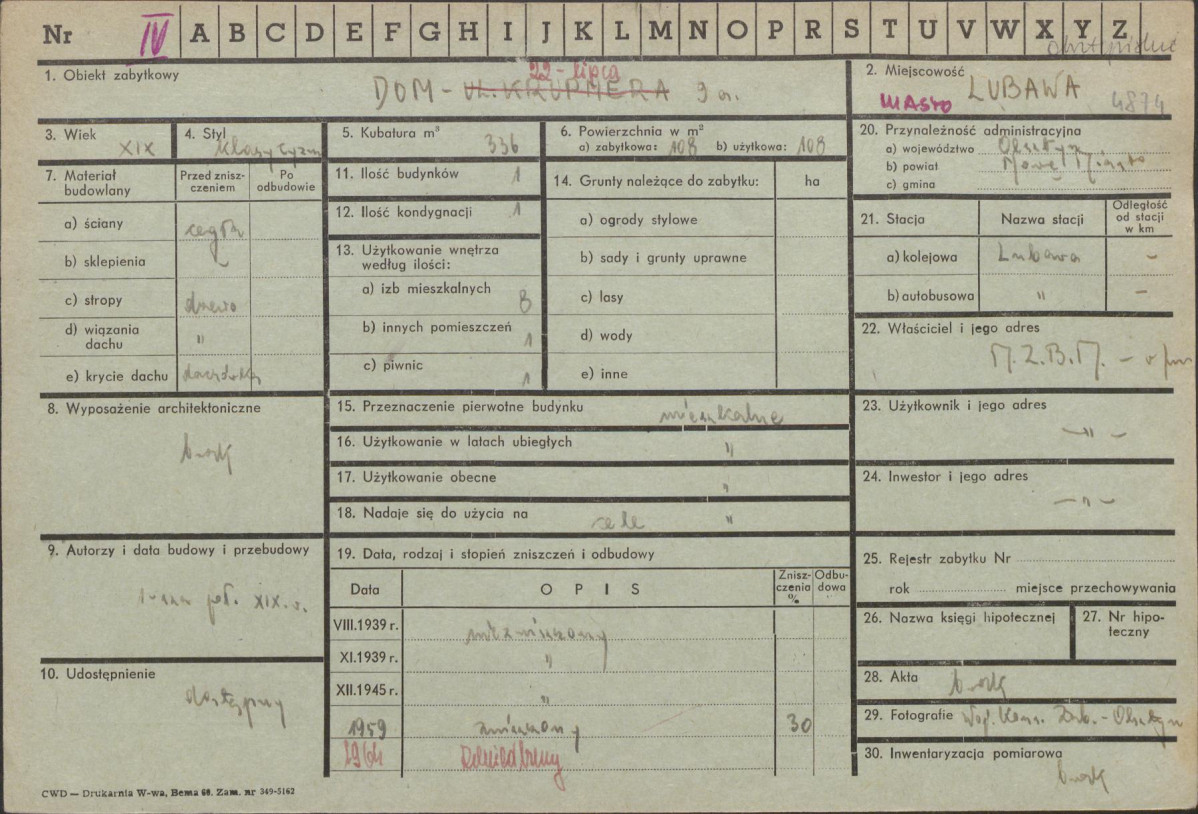 Nr IV A B C D E F G H I J K L M N O P R S T U V W X Y Z
1. Obiekt zabytkowy
22-lipca
DOM - ul. KRUPNERA 9 a.
2. Miejscowość
LUBAWA
MIASTO 4874
3. Wiek
XIX
4. Styl
klasycyzm
5. Kubatura m³
336
6. Powierzchnia w m²
a) zabytkowa: 108 b) użytkowa: 108
20. Przynależność administracyjna
a) województwo Olsztyn
b) powiat Nowe Miasto
c) gmina
7. Materiał budowlany
Przed zniszczeniem
Po odbudowie
a) ściany cegła
b) sklepienia -
c) stropy drewno
d) wiązania dachu "
e) krycie dachu dachówka
11. Ilość budynków 1
12. Ilość kondygnacji 1
13. Użytkowanie wnętrza według ilości:
a) izb mieszkalnych 8
b) innych pomieszczeń 1
c) piwnic 1
14. Grunty należące do zabytku: ha
a) ogrody stylowe
b) sady i grunty uprawne
c) lasy
d) wody
e) inne
21. Stacja
Nazwa stacji
Odległość od stacji w km
a) kolejowa Lubawa -
b) autobusowa " -
22. Właściciel i jego adres
M.Z.B.M. -
8. Wyposażenie architektoniczne
brak
15. Przeznaczenie pierwotne budynku mieszkalne
16. Użytkowanie w latach ubiegłych "
17. Użytkowanie obecne "
18. Nadaje się do użycia na cele "
23. Użytkownik i jego adres
-"-
24. Inwestor i jego adres
-"-
9. Autorzy i data budowy i przebudowy
I-sza poł. XIX w.
19. Data, rodzaj i stopień zniszczeń i odbudowy
Data
OPIS
Zniszczenia %
Odbudowa
VIII.1939 r. niezniszczony
XI.1939 r. "
XII.1945 r. "
1959 zniszczony 30
1964
25. Rejestr zabytku Nr
rok miejsce przechowywania
26. Nazwa księgi hipotecznej
27. Nr hipoteczny
10. Udostępnienie
dostępny
28. Akta brak
29. Fotografie Woj. Kons. Zab. - Olsztyn
30. Inwentaryzacja pomiarowa
brak
CWD — Drukarnia W-wa, Bema 60. Zam. nr 349-5162